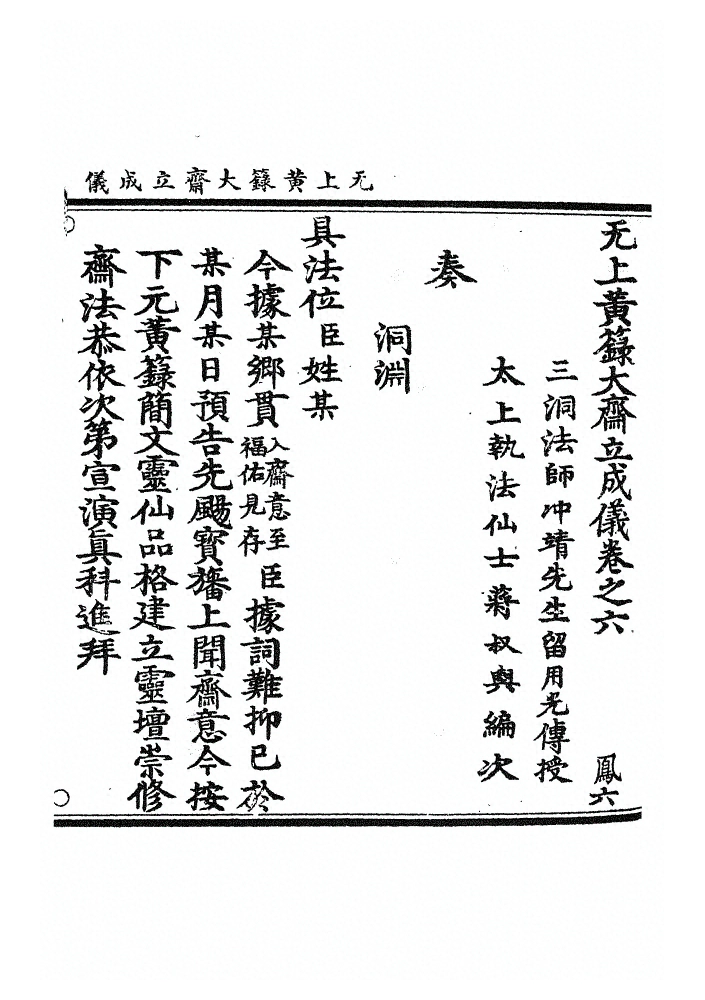 无上黄籙大齋立成儀
无上黄籙大齋立成儀卷之六 鳳六
三洞法師冲靖先生留用光傳授
太上執法仙士蔣叔輿編次
奏
洞淵
具法位臣姓某
今據某鄉貫入齋意至福佑見存臣據詞難抑已於
某月某日預告先颺寶旛上聞齋意今按
下元黄籙簡文靈仙品格建立靈壇崇修
齋法恭依次第宣演眞科進拜